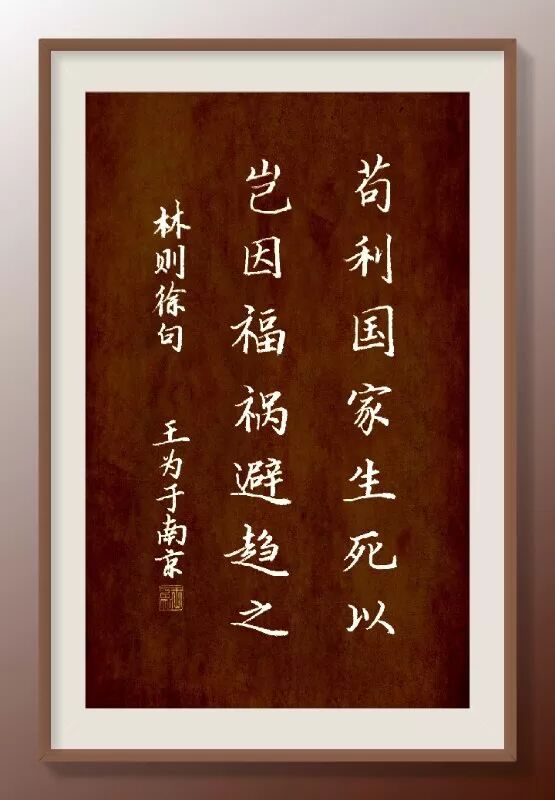 苟利国家生死以
岂因福祸避趋之
林则徐句 王为于南京